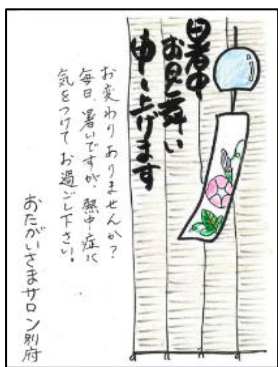 暑中
お見舞い
申し上げます
お変わりありませんか？
毎日、暑いですが、熱中症に
気をつけてお過ごし下さい。
おたがいさまサロン別府